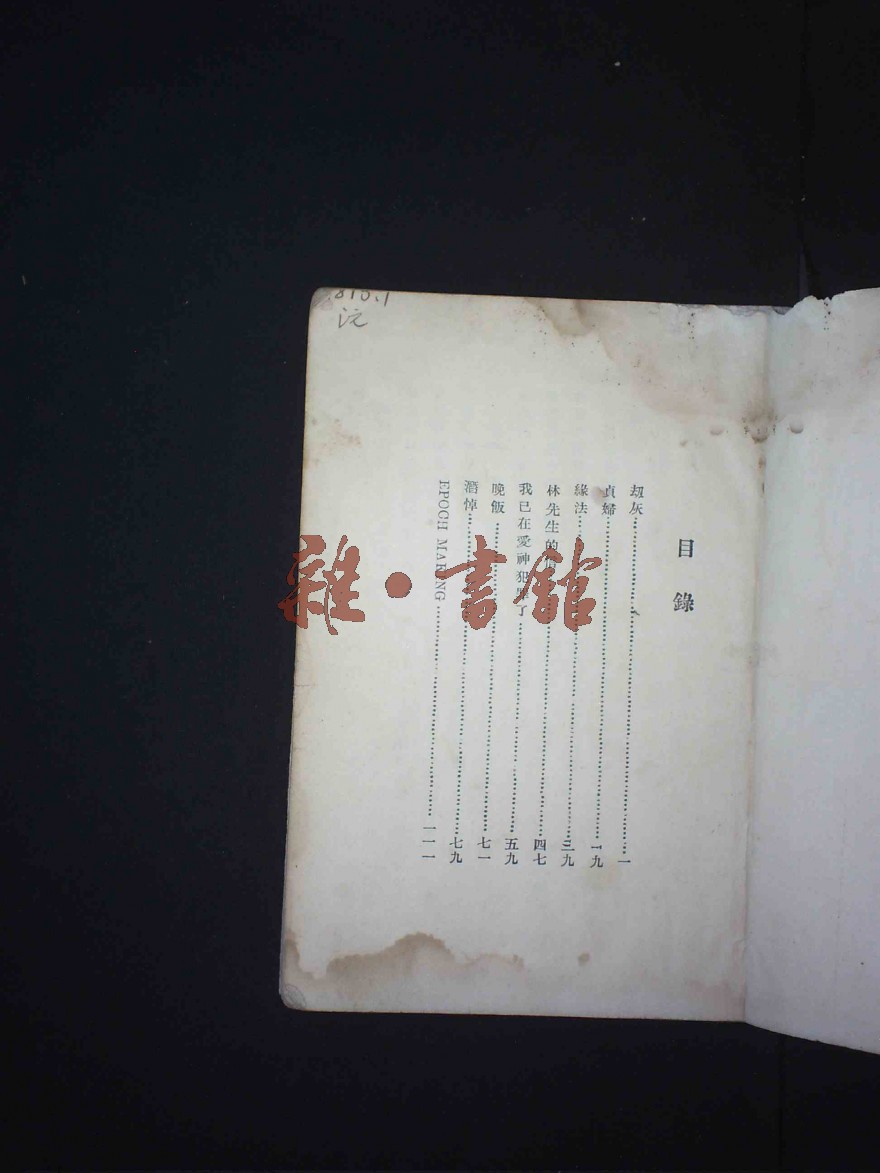 目錄
刼灰 一
貞婦 一九
緣法 三九
林先生的 四七
我已在愛神犯 了 五九
晚飯 七一
潛悼 七九
EPOCH MAKING 一一一
813.1
沅
雜·書館